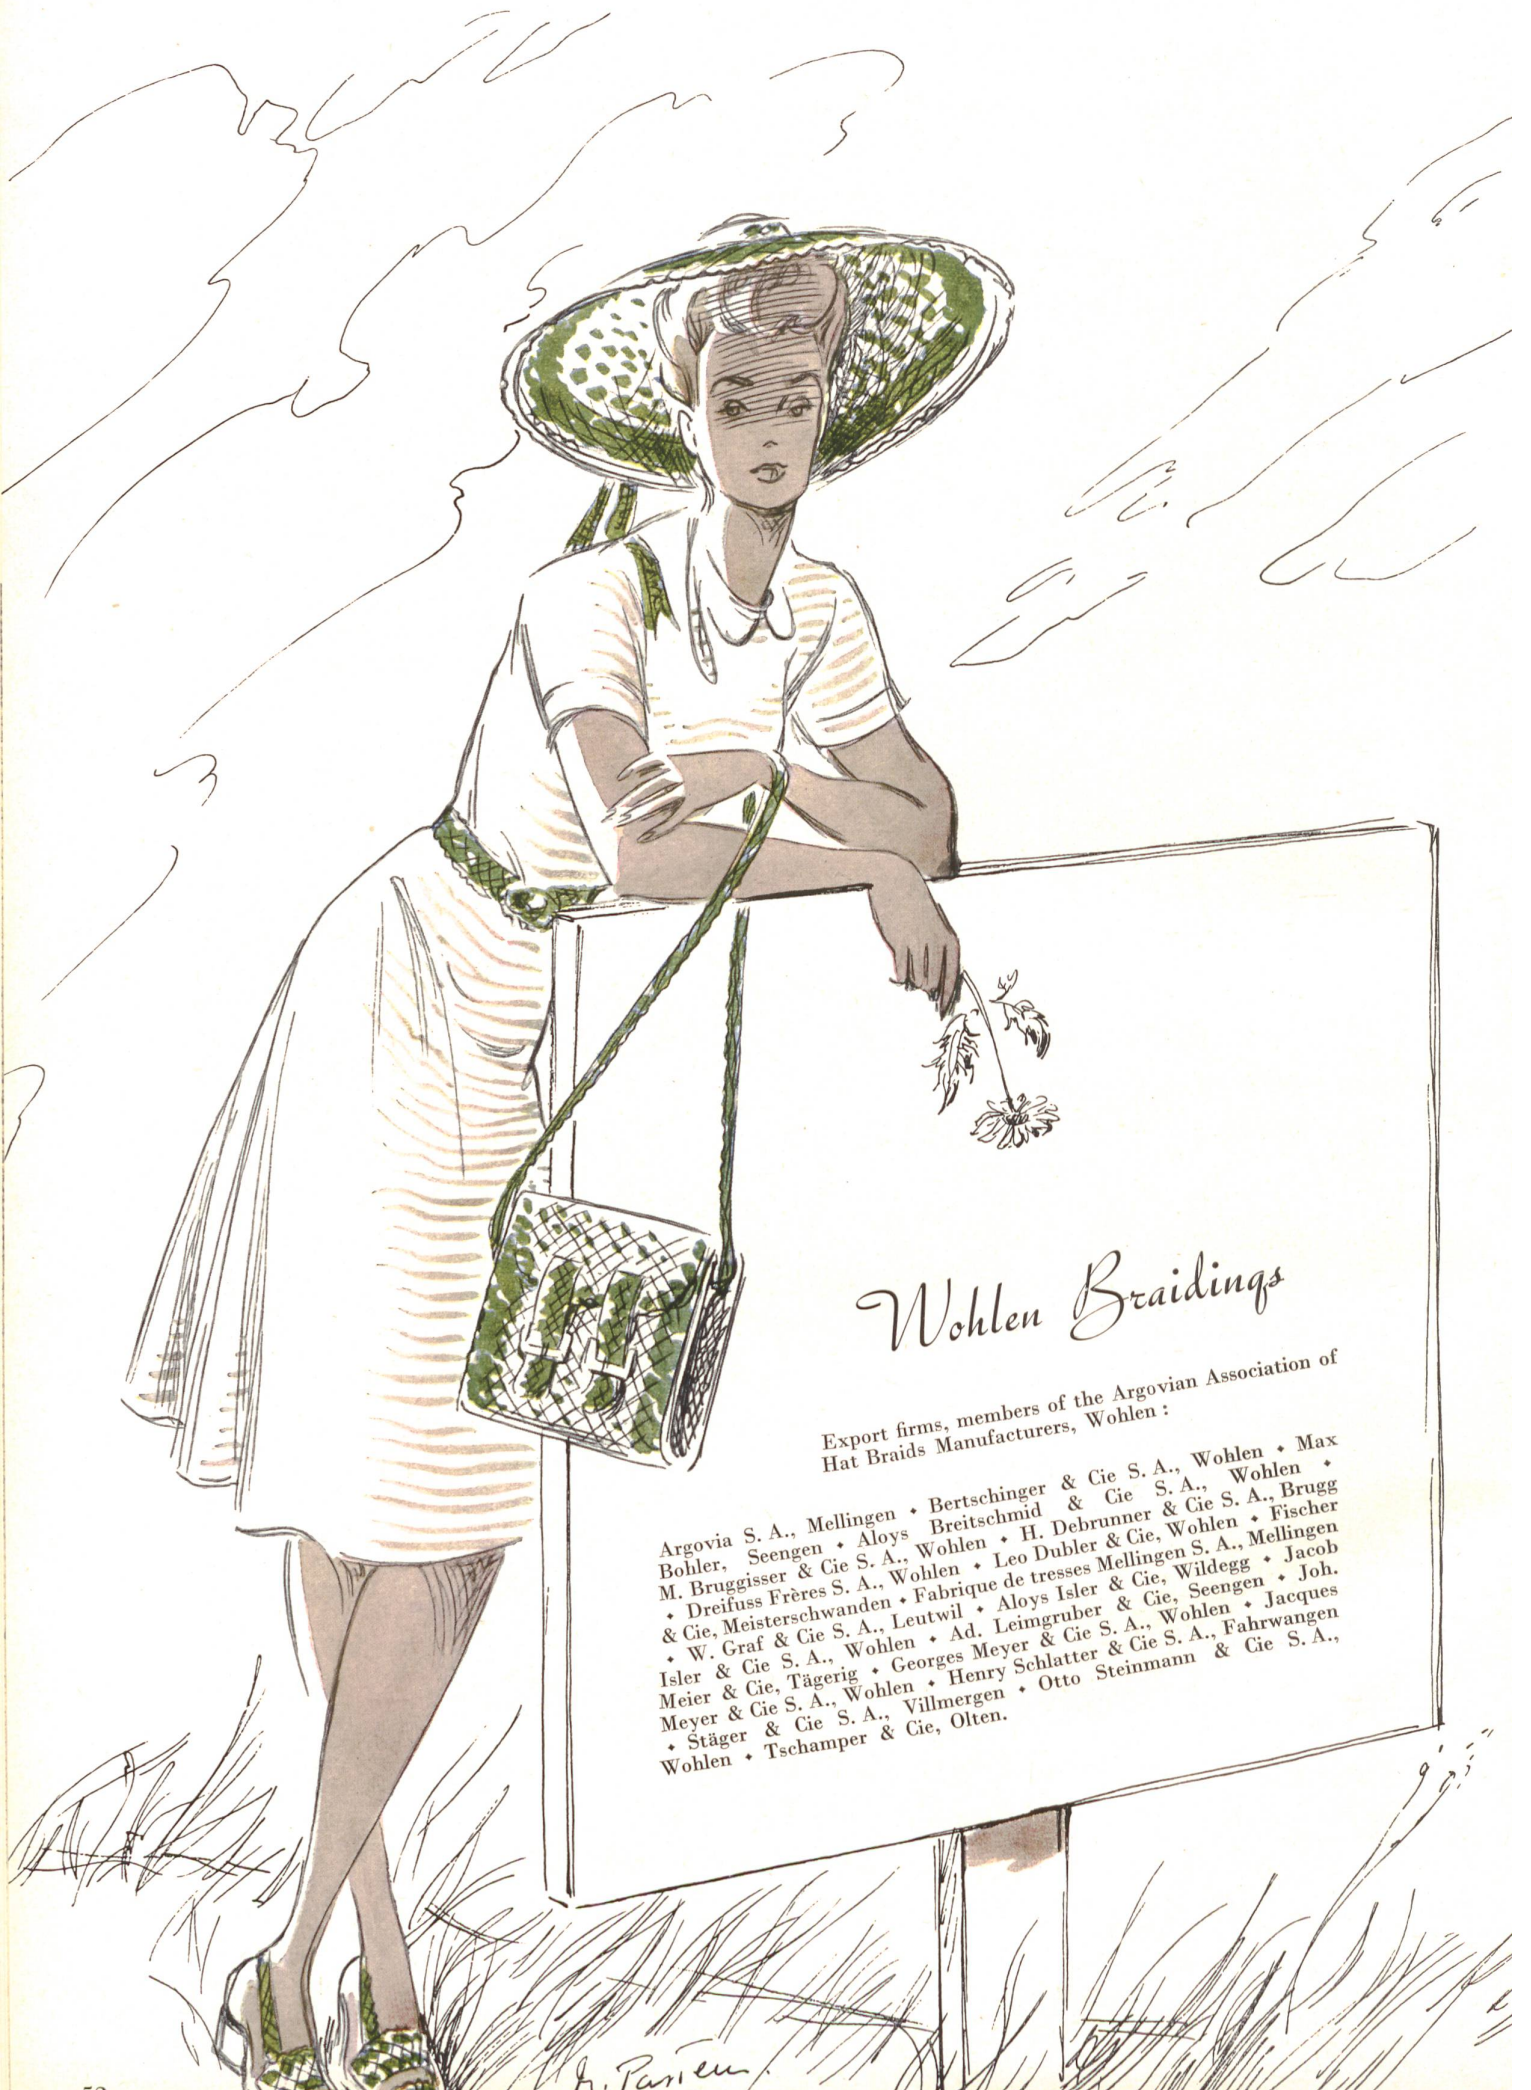 Wohlen Braidings
Export firms, members of the Argovian Association of
Hat Braids Manufacturers, Wohlen :
Argovia S. A., Mellingen ⬥ Bertschinger & Cie S. A., Wohlen ⬥ Max
Bohler, Seengen ⬥ Aloys Breitschmid & Cie S. A., Wohlen ⬥
M. Bruggisser & Cie S. A., Wohlen ⬥ H. Debrunner & Cie S. A., Brugg
⬥ Dreifuss Frères S. A., Wohlen ⬥ Leo Dubler & Cie, Wohlen ⬥ Fischer
& Cie, Meisterschwanden ⬥ Fabrique de tresses Mellingen S. A., Mellingen
⬥ W. Graf & Cie S. A., Leutwil ⬥ Aloys Isler & Cie, Wildegg ⬥ Jacob
Isler & Cie S. A., Wohlen ⬥ Ad. Leimgruber & Cie, Seengen ⬥ Joh.
Meier & Cie, Tägerig ⬥ Georges Meyer & Cie S. A., Wohlen ⬥ Jacques
Meyer & Cie S. A., Wohlen ⬥ Henry Schlatter & Cie S. A., Fahrwangen
⬥ Stäger & Cie S. A., Villmergen ⬥ Otto Steinmann & Cie S. A.,
Wohlen ⬥ Tschamper & Cie, Olten.